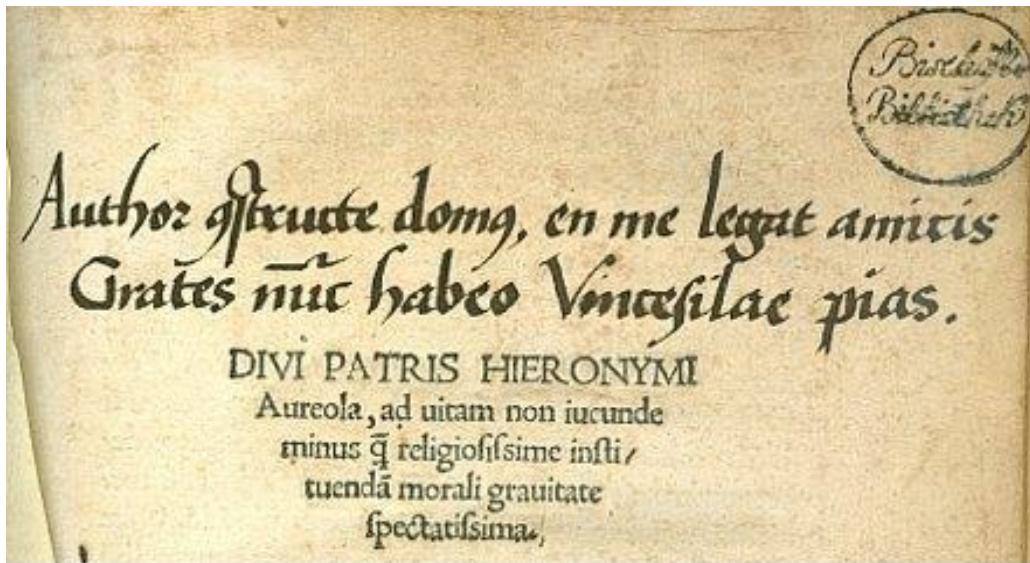 Bibliothek
Author ꝯstructe domꝰ, en me legat amicis
Grates nūc habeo Vincesilae pias.
DIVI PATRIS HIERONYMI
Aureola, ad uitam non iucunde
minus q̄ religioſiſsime inſti/
tuendā morali grauitate
ſpectatiſsima.,